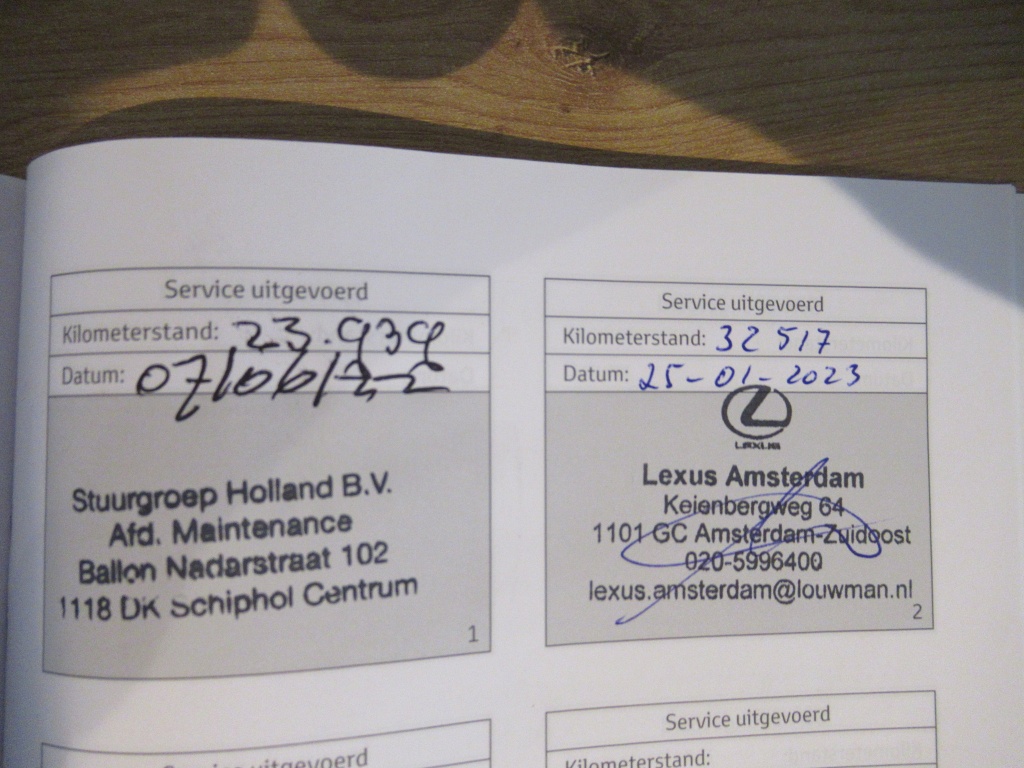 Service uitgevoerd
Kilometerstand: 23.939
Datum: 07/06/22
Stuurgroep Holland B.V.
Afd. Maintenance
Ballon Nadarstraat 102
1118 DK Schiphol Centrum
1
Service uitgevoerd
Kilometerstand: 32 517
Datum: 25-01-2023
LEXUS
Lexus Amsterdam
Keienbergweg 64
1101 GC Amsterdam-Zuidoost
020-5996400
lexus.amsterdam@louwman.nl
2
Service uitgevoerd
Service uitgevoerd
Kilometerstand: